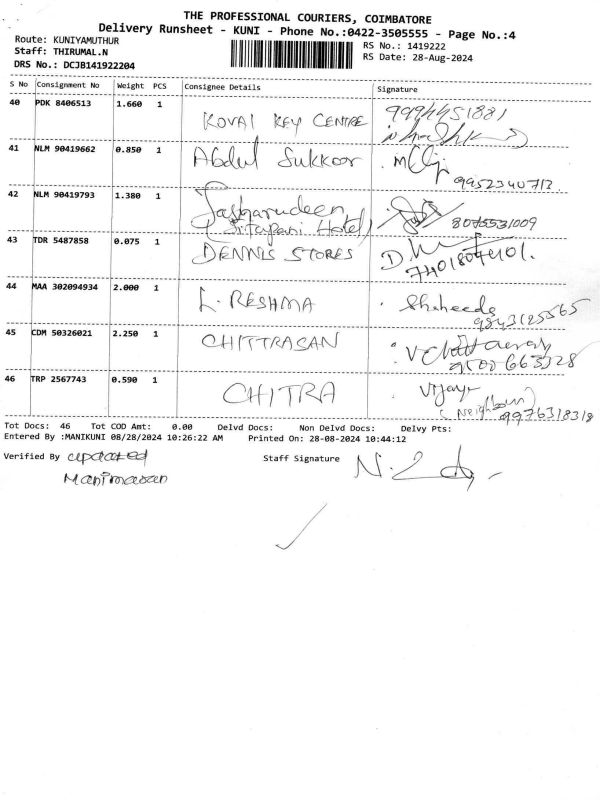 THE PROFESSIONAL COURIERS, COIMBATORE
Delivery Runsheet - KUNI - Phone No.:0422-3505555 - Page No.:4
Route: KUNIYAMUTHUR RS No.: 1419222
Staff: THIRUMAL.N RS Date: 28-Aug-2024
DRS No.: DCJB141922204
S No Consignment No Weight PCS Consignee Details Signature
40 PDK 8406513 1.660 1 KOVAI KEY CENTRE 9994451881
41 NLM 90419662 0.850 1 Abdul Sukkoor 9952340713
42 NLM 90419793 1.380 1 Jasbarudeen
(Sitapani Hotel) 8075531009
43 TDR 5487858 0.075 1 DENNIS STORES
7401804101.
44 MAA 302094934 2.000 1 L. RESHMA Shaheeda
9843125565
45 CDM 50326021 2.250 1 CHITTRASAN
9500663328
46 TRP 2567743 0.590 1 CHITRA Vijaya
(Neighbour)
9976318318
Tot Docs: 46 Tot COD Amt: 0.00 Delvd Docs: Non Delvd Docs: Delvy Pts:
Entered By :MANIKUNI 08/28/2024 10:26:22 AM Printed On: 28-08-2024 10:44:12
Verified By updated Staff Signature
Manimaran